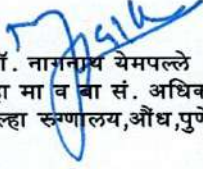 ॉ. नागनाथ येमपल्ले
हा मा व बा सं. अधिक
ल्हा रुग्णालय,औंध,पुणे